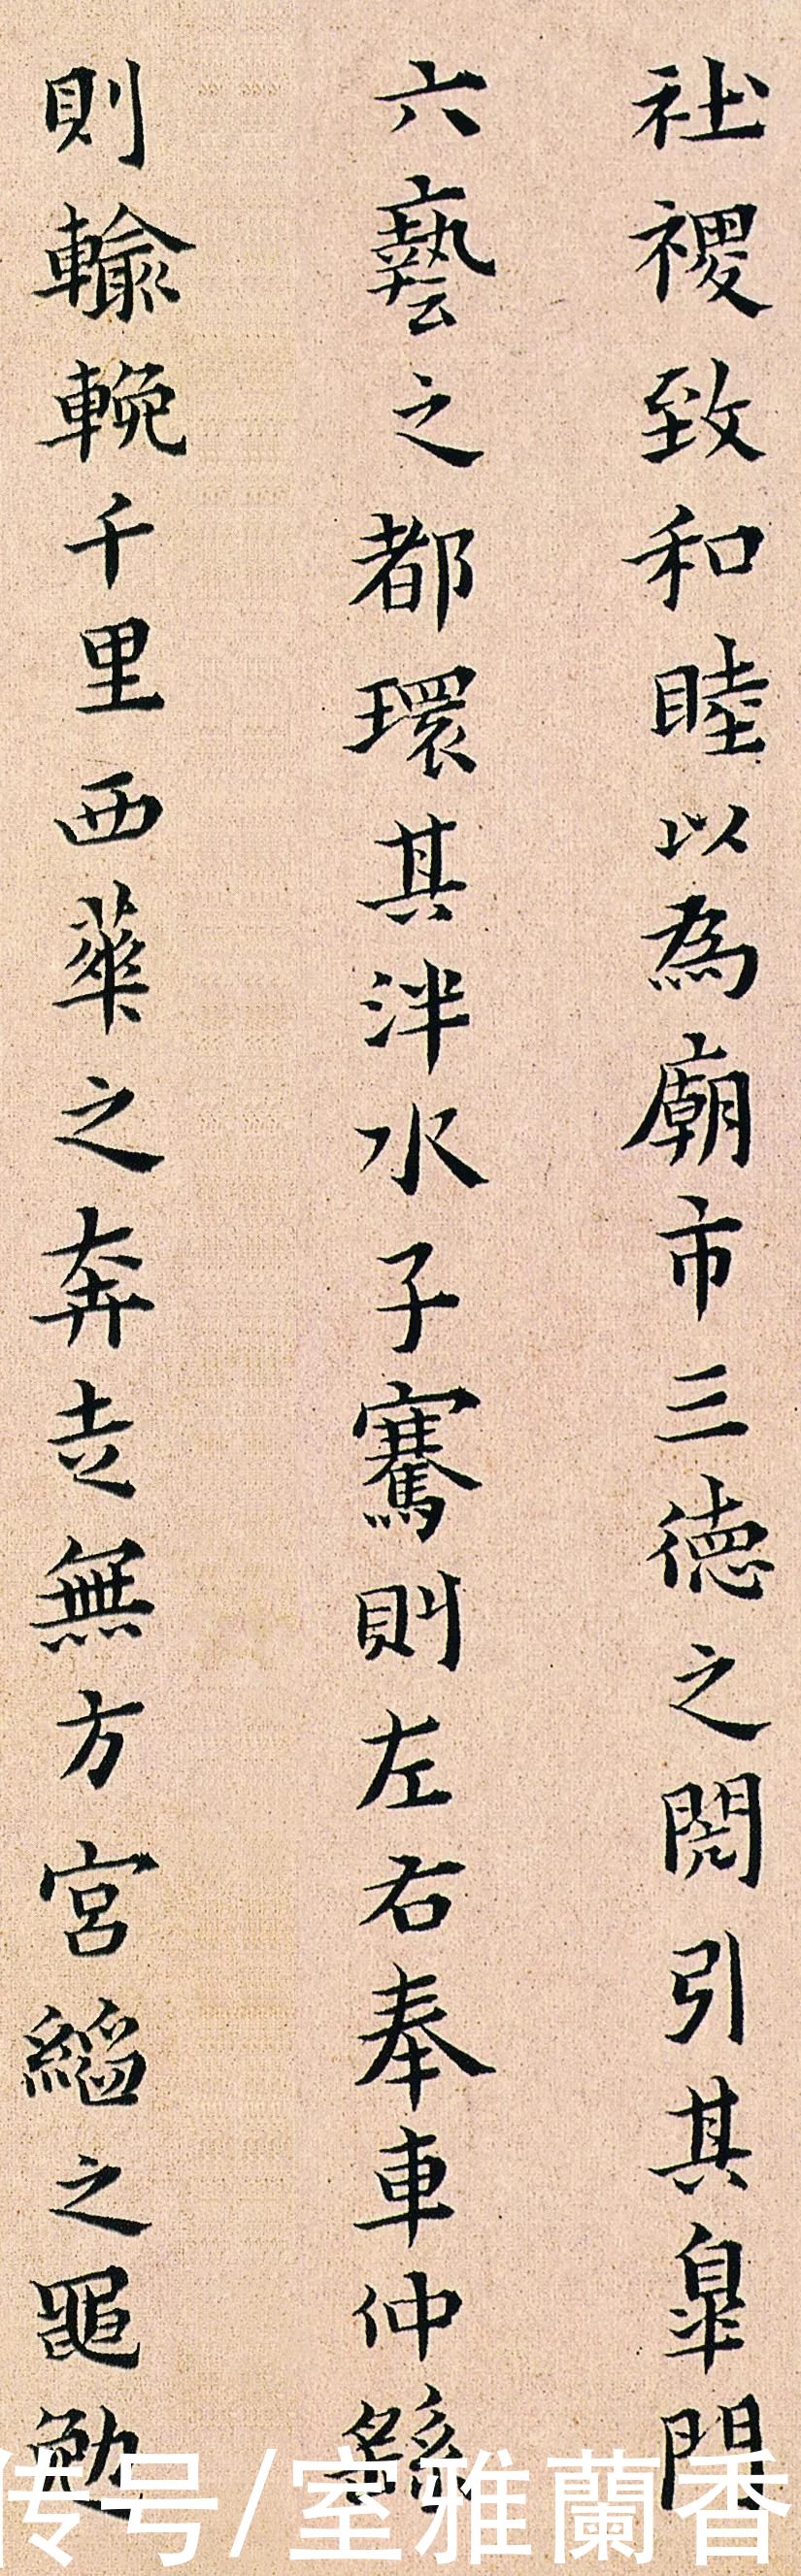 社稷致和睦以為廟市三德之閎引其皐門
六藝之都環其泮水子騫則左右奉車仲繇
則輸輓千里西華之奔走無方宮縚之黽勉
传号/室雅蘭香